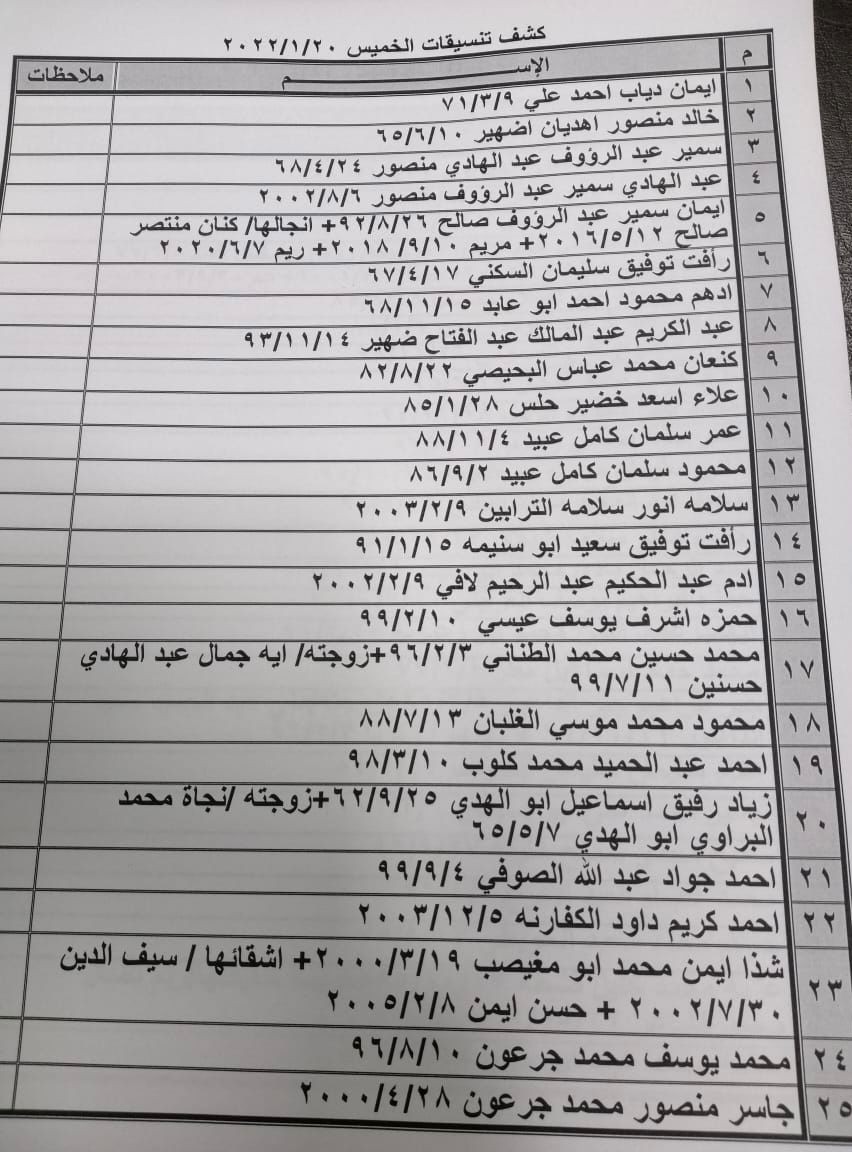 كشف تنسيقات الخميس ٢٠٢٢/١/٢٠
م الإســـــــــم ملاحظات
١ ايمان دياب احمد علي ٧١/٣/٩
٢ خالد منصور اهديان اضهير ٦٥/٦/١٠
٣ سمير عبد الرؤوف عبد الهادي منصور ٦٨/٤/٢٤
٤ عبد الهادي سمير عبد الرؤوف منصور ٢٠٠٢/٨/٦
٥ ايمان سمير عبد الرؤوف صالح ٩٢/٨/٢٦+ انجالها/ كنان منتصر
صالح ٢٠١٦/٥/١٢+ مريم ٢٠١٨ /٩/١٠+ ريم ٢٠٢٠/٦/٧
٦ رأفت توفيق سليمان السكني ٦٧/٤/١٧
٧ ادهم محمود احمد ابو عابد ٦٨/١١/١٥
٨ عبد الكريم عبد المالك عبد الفتاح ضهير ٩٣/١١/١٤
٩ كنعان محمد عباس البحيصي ٨٢/٨/٢٢
١٠ علاء اسعد خضير حلس ٨٥/١/٢٨
١١ عمر سلمان كامل عبيد ٨٨/١١/٤
١٢ محمود سلمان كامل عبيد ٨٦/٩/٢
١٣ سلامه انور سلامه الترابين ٢٠٠٣/٢/٩
١٤ رأفت توفيق سعيد ابو سنيمه ٩١/١/١٥
١٥ ادم عبد الحكيم عبد الرحيم لافي ٢٠٠٢/٢/٩
١٦ حمزه اشرف يوسف عيسي ٩٩/٢/١٠
١٧ محمد حسين محمد الطناني ٩٦/٢/٣+زوجته/ ايه جمال عبد الهادي
حسنين ٩٩/٧/١١
١٨ محمود محمد موسي الغلبان ٨٨/٧/١٣
١٩ احمد عبد الحميد محمد كلوب ٩٨/٣/١٠
٢٠ زياد رفيق اسماعيل ابو الهدي ٦٢/٩/٢٥+زوجته /نجاة محمد
البراوي ابو الهدي ٦٥/٥/٧
٢١ احمد جواد عبد الله الصوفي ٩٩/٩/٤
٢٢ احمد كريم داود الكفارنه ٢٠٠٣/١٢/٥
٢٣ شذا ايمن محمد ابو مغيصب ٢٠٠٠/٣/١٩+ اشقائها / سيف الدين
٢٠٠٢/٧/٣٠ + حسن ايمن ٢٠٠٥/٢/٨
٢٤ محمد يوسف محمد جرعون ٩٦/٨/١٠
٢٥ جاسر منصور محمد جرعون ٢٠٠٠/٤/٢٨